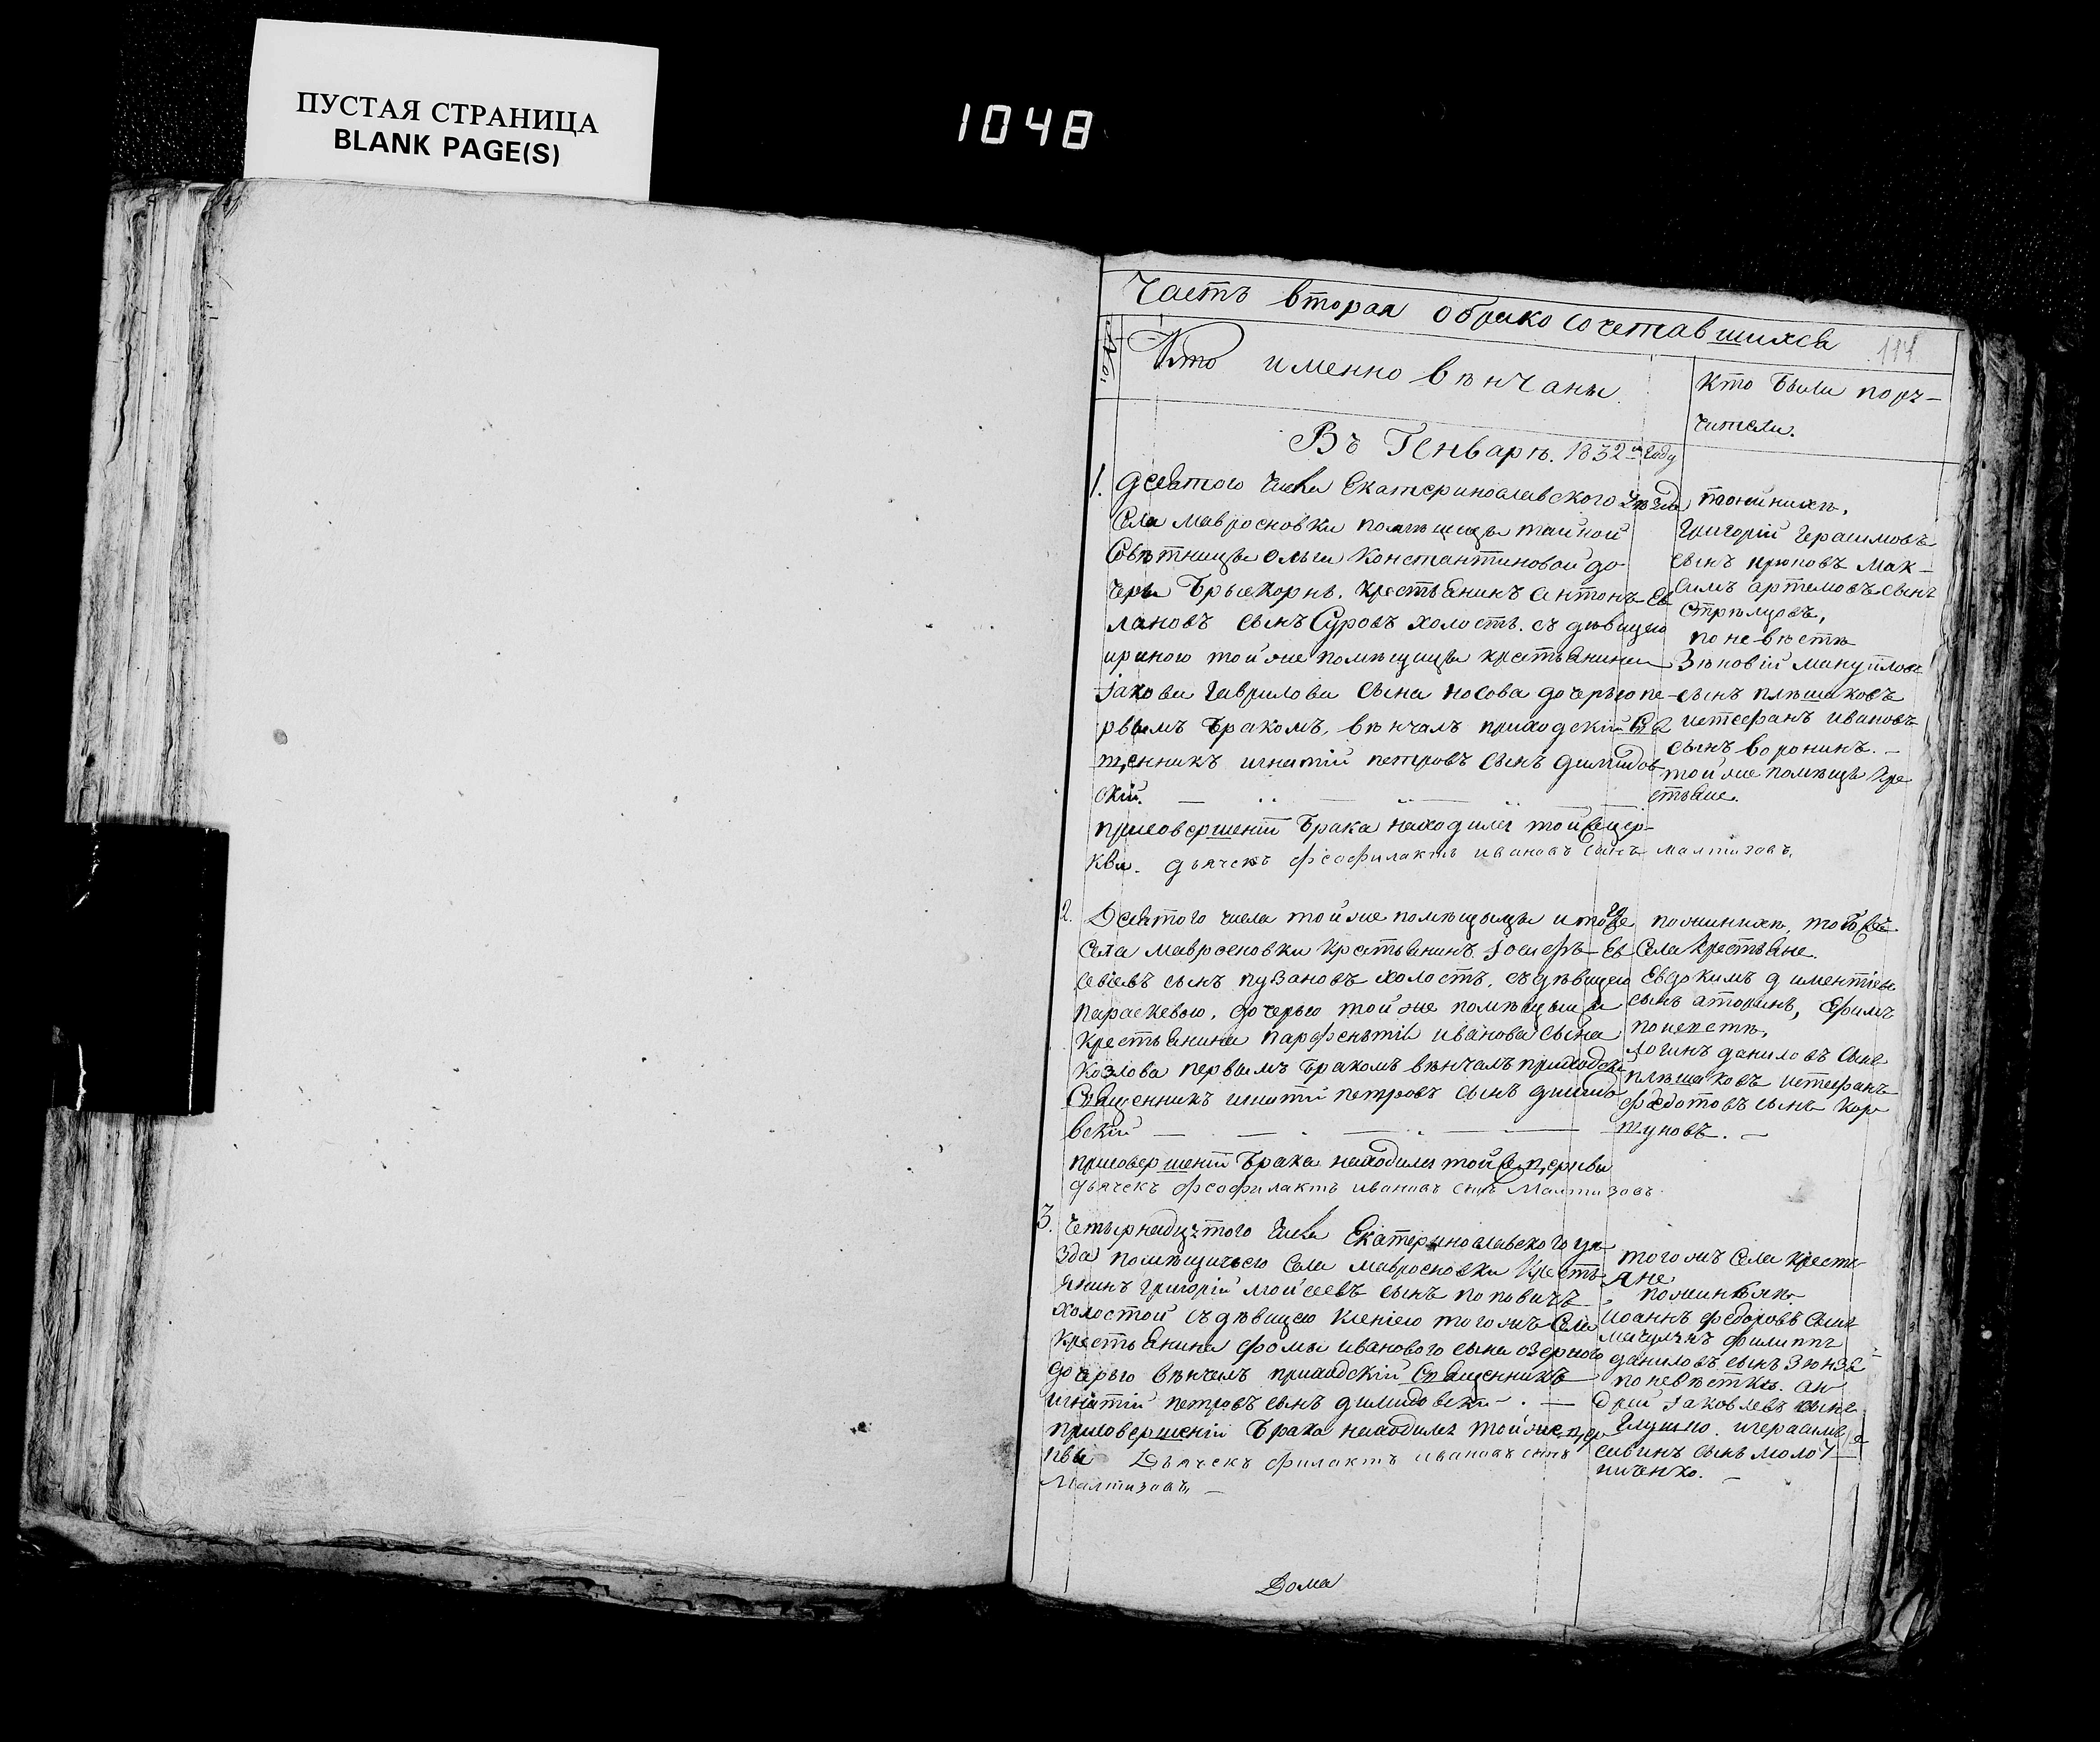 ПУСТАЯ СТРАНИЦА
BLANK PAGE(S)
1048
Часть вторая обрако сочетавшихся
114
Кто именно вѣнчаны
Кто были пору-
чители.
Въ Генварѣ. 1832 году
1. девятого числа Екатеринославского уѣзда
Села Мавросновки помѣщицы тайной
Совѣтницы Ольги Константиновой до-
чери крестьянинъ Антонъ
сынъ Суровъ холостъ. съ дѣвицею
ириною той же помѣщицы крестьянина
Іакова Гаврилова сына Носова дочерью пе-
рвымъ бракомъ, вѣнчалъ приходскій Свя
щенникъ игнатій петровъ сынъ димидов
скій.
присовершеніи брака находился той Церк
кви. дьячекъ феофилактъ ивановъ сынъ малтизовъ.
по женихѣ,
Григорій Герасимовъ
сынъ крюковъ Мак-
симъ артемовъ сынъ
Стрѣлцовъ,
по невѣстѣ
Зѣновій мануйловъ
сынъ плѣшаковъ
истефанъ ивановъ
сынъ воронинъ. -
той же помѣщицы кре
стьяне.
2. Девятого числа той же помѣщицы и того же
Села мавросновки крестьянинъ Іосифъ Ев
сеѣвъ сынъ пузановъ холостъ, съ дѣвицею
параскевою, дочерью той же помѣщицы
крестьянина парфентія иванова сына
Козлова первымъ бракомъ вѣнчалъ приходскій
Священникъ игнатій петровъ сынъ димидо
вскій
присовершеніи брака находился той церкви
дьячекъ феофилактъ ивановъ сынъ Малтизовъ
по женихѣ,
Села крестьяне.
Евдокимъ диментіевъ
сынъ Ефимъ
по невѣстѣ,
логинъ даниловъ сынъ
плѣшаковъ истефанъ
федотовъ сынъ Кор
туновъ. -
3. Четырнадцатого числа Екатеринославского уѣ
зда помѣщичьего Села мавросновки Кресть
янинъ григорій мойсеевъ сынъ поповичъ
холостой съ дѣвицею ксеніею того жъ Села
крестьянина фомы иванового сына озерного
дочерью вѣнчалъ приходскій Священникъ
игнатій петровъ сынъ димидовскій
присовершеніи брака находился той же цер
кви Дьячекъ филактъ ивановъ сынъ
Малтизовъ -
того жъ Села кресть
яне
по женихѣ
иоаннъ федоровъ сынъ
филиппъ
даниловъ сынъ
по невѣстѣ. ан
дрей Іаковлевъ сынъ
Глушко. игерасимъ
савинъ сынъ молот
ниченко. -
Дома